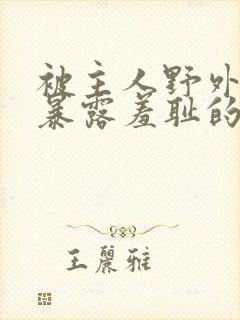 被主人野外
暴露羞耻的
王麗雅